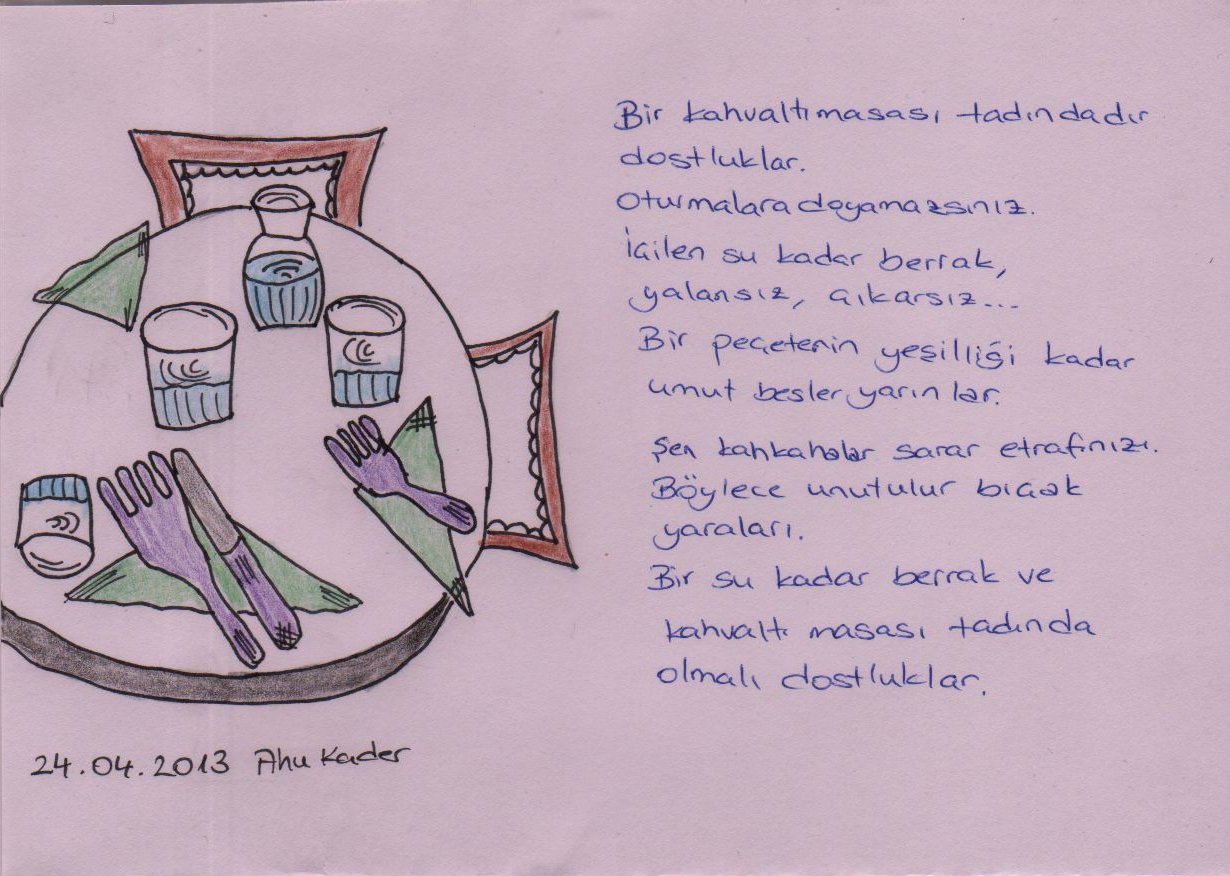 Bir kahvaltı masası tadındadır
dostluklar.
Oturmalara doyamazsınız.
İçilen su kadar berrak,
yalansız, çıkarsız...
Bir peçetenin yeşilliği kadar
umut besler yarınlar.
Şen kahkahalar sarar etrafınızı.
Böylece unutulur bıçak
yaraları.
Bir su kadar berrak ve
kahvaltı masası tadında
olmalı dostluklar.
24.04.2013 Ahu Kader